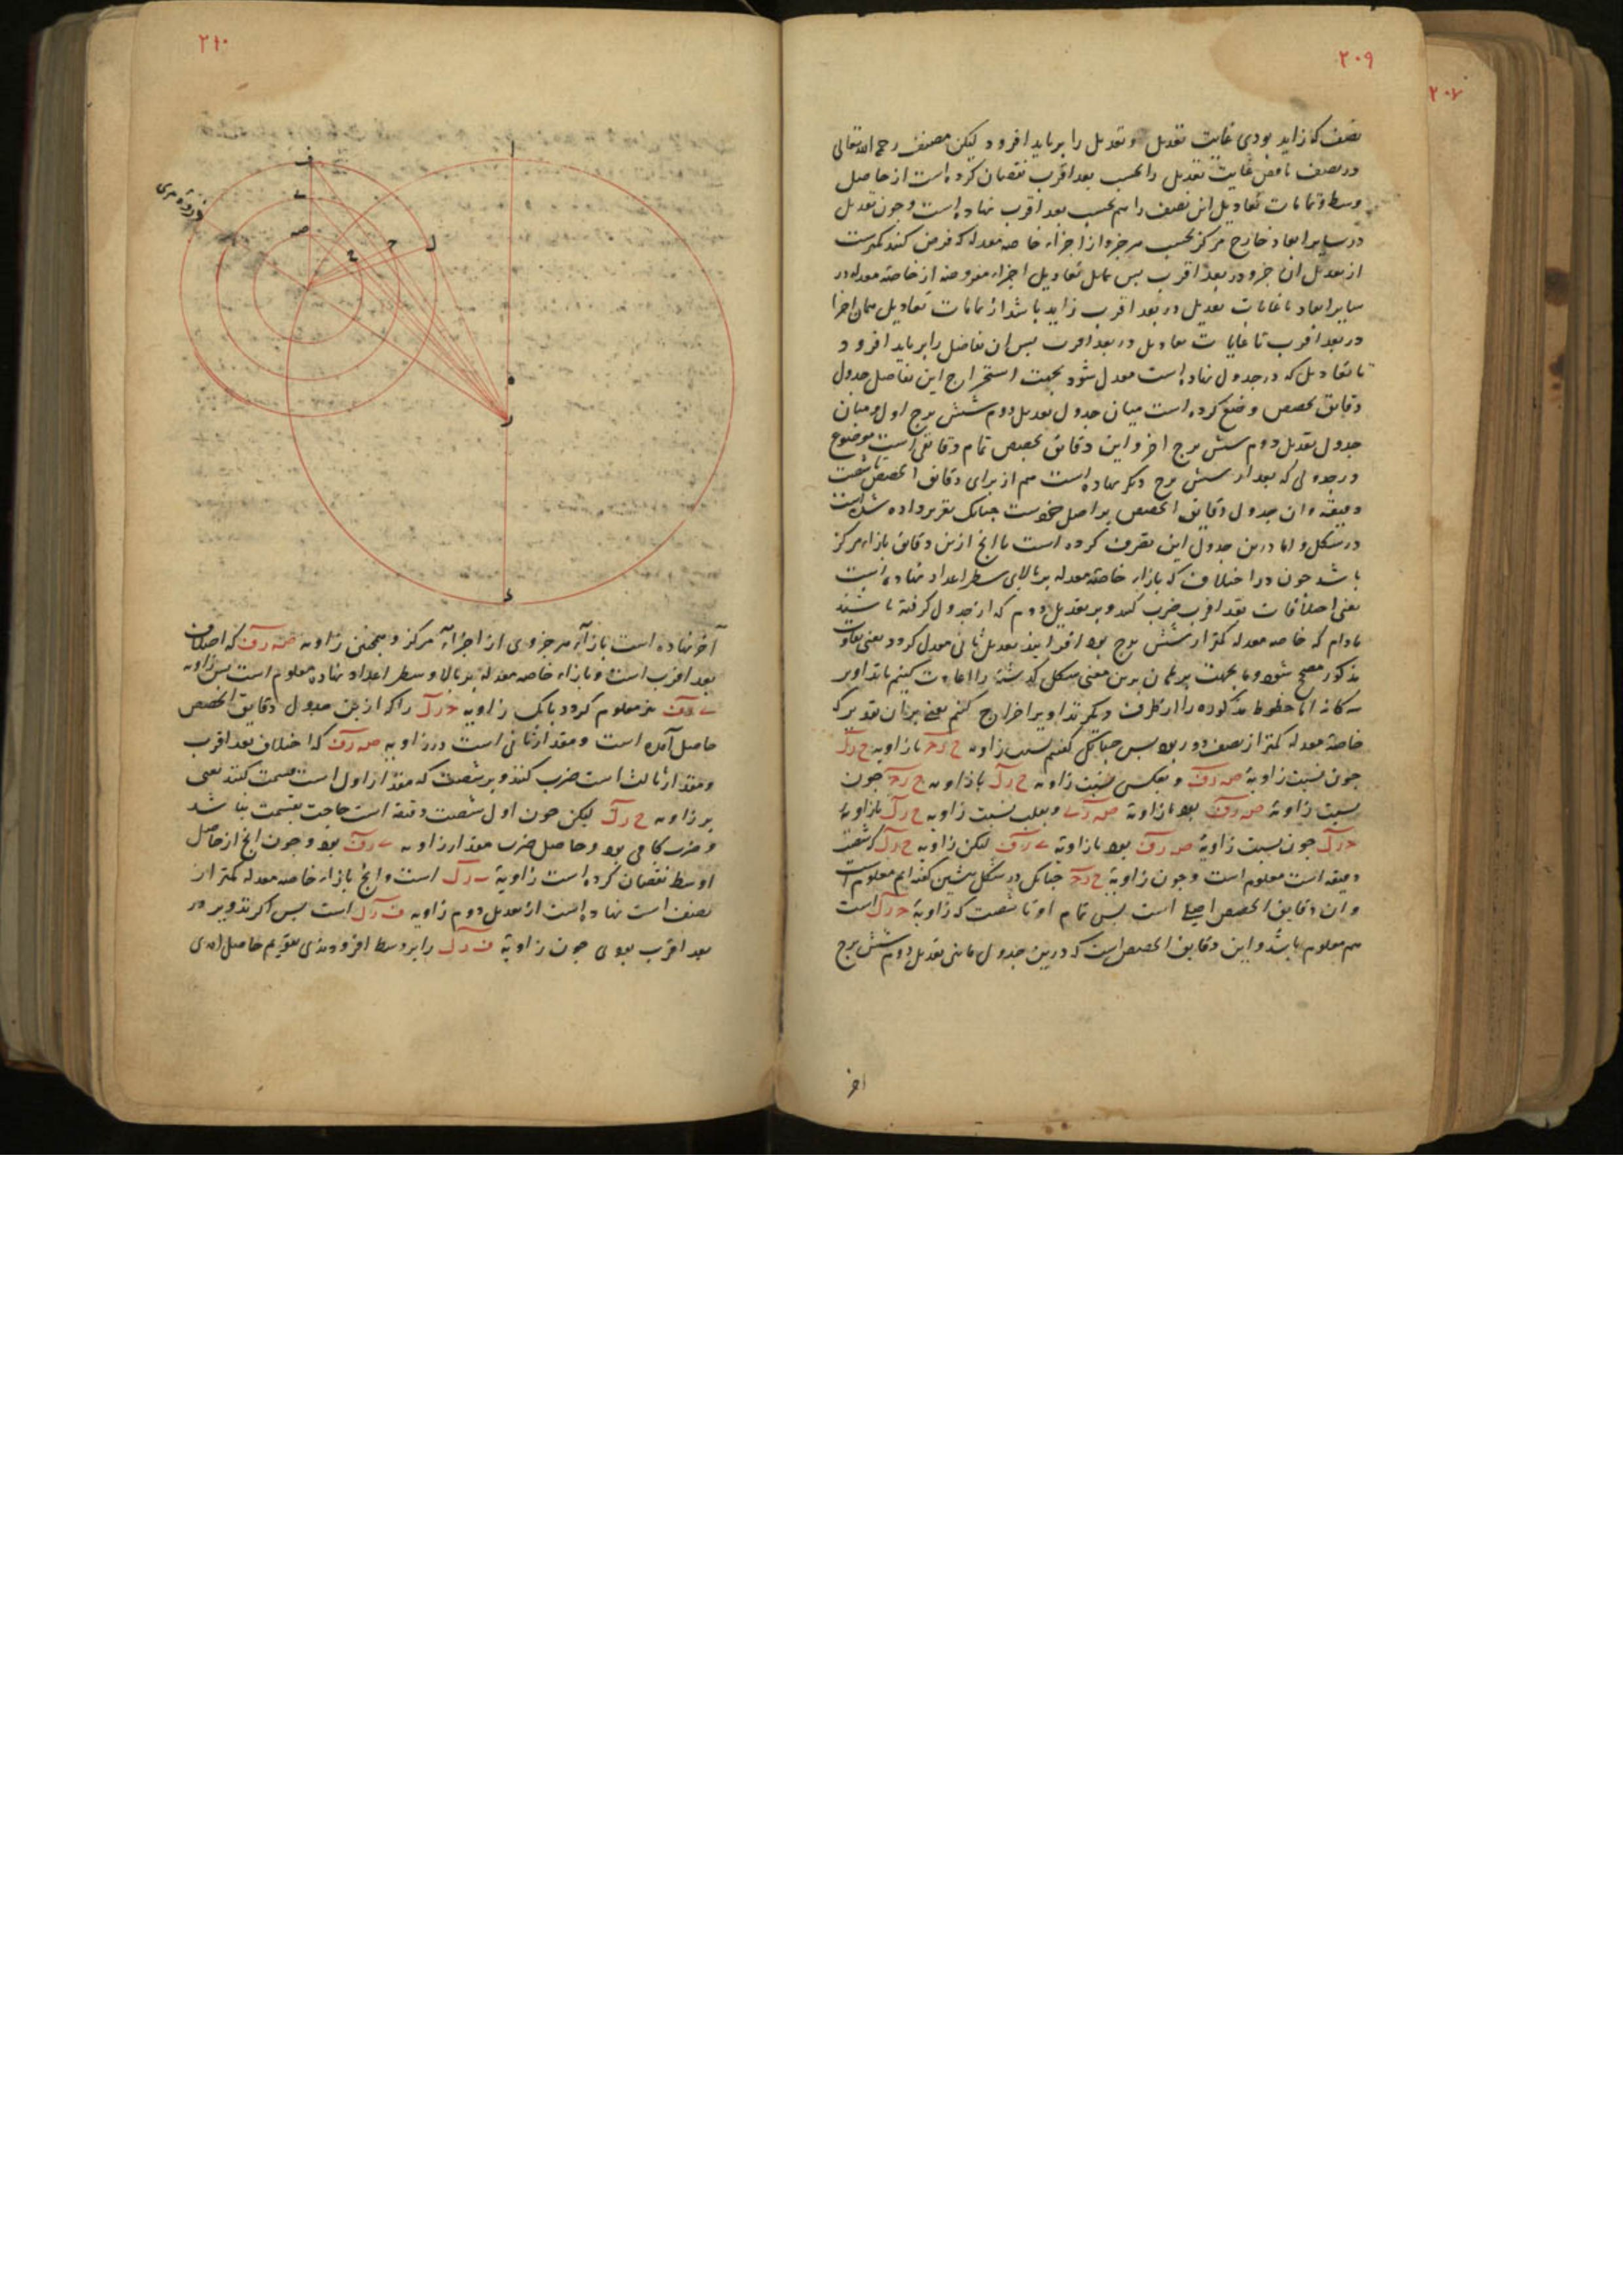 ۲۰۹
۲۰۷
نصف که زاید بودی غایت تعدیل و تعدیل را بر باید افزود لیکن مصنف رحمه الله تعالی
در نصف ناقص غایت تعدیل را بحسب بعد اقرب نقصان کرده است از حاصل
وسط و تمامات تعادیل این نصف را هم بحسب بعد اقرب نهاده است و چون تعدیل
در سایر ابعاد خارج مرکز بحسب هر جزو از اجزاء خاصه معدله که فرض کنند کمترست
از تعدیل ان جزو در بعد اقرب پس تعادیل اجزاء مفروضه از خاصه معدله در
سایر ابعاد تا غایات تعدیل در بعد اقرب زاید باشد از تمامات تعادیل همان اجزا
در بعد اقرب تا غایات تعادیل در بعد اقرب پس ان تفاضل را بر باید افزود
تا تعادیل که در جدول نهاده است معدل شود بجهت استخراج این تفاضل جدول
دقایق حصص وضع کرده است میان جدول تعدیل دوم شش برج اول و میان
جدول تعدیل دوم شش برج اخر و این دقایق حصص تمام دقایقی است موضوع
در جدولی که بعد از شش برج دیگر نهاده است هم از برای دقایق الحصص تا شصت
دقیقه و ان جدول دقایق الحصص بر اصل خوست چنانک تقریر داده شده است
در شکل و اما درین جدول این تصرف کرده است تا انچ ازین دقایق بازاء مرکز
باشد چون در اختلاف که بازاء خاصه معدله بر بالای سطر اعداد نهاده است
یعنی اختلافات بعد اقرب ضرب کنند و بر تعدیل دوم که از جدول گرفته باشند
مادام که خاصه معدله کمتر از شش برج بود افزایند تعدیل ثانی معدل گردد یعنی تفاوت
مذکور مصحح شود و ما بجهت برهان برین معنی شکل گذشته را اعادت کنیم با تداویر
سه گانه اما خطوط مذکوره را از طرف دیگر تداویر اخراج کنیم یعنی بران تقدیر که
خاصه معدله کمتر از نصف دور بود پس چنانک گفتیم نسبت زاویه ح ر ج با زاویه ح ر ل
چون نسبت زاویه صه ر ف و بعکس نسبت زاویه ح ر ل با زاویه ح ر ج چون
نسبت زاویه صه ر ف بود با زاویه صه ر ے و بقلب نسبت زاویه ح ر ل با زاویه
ج ر ل چون نسبت زاویه صه ر ف بود با زاویه ے ر ف لیکن زاویه ح ر ل که شصت
دقیقه است معلوم است و چون زاویه ح ر ج چنانک در شکل پیشین گفته ایم معلوم است
و ان دقایق الحصص اصلی است پس تمام او تا شصت که زاویه ج ر ل است
هم معلوم باشد و این دقایق الحصص است که درین جدول مابین تعدیل دوم شش برج
اخر
۲۱۰
ا
ف
ے
صه
ح
ج
ل
ه
ر
ء
ذروه مری
آخر نهاده است بازاء هر جزوی از اجزاء مرکز و همچنین زاویه صه ر ف که اختلاف
بعد اقرب است و بازاء خاصه معدله بر بالا و سطر اعداد نهاده معلوم است پس زاویه
ے ر ف نیز معلوم گردد بانک زاویه ج ر ل را که ازین جدول دقایق الحصص
حاصل آمده است و مقدار ثانی است در زاویه صه ر ف که اختلاف بعد اقرب
و مقدار ثالث است ضرب کنند و بر شصت که مقدار اول است قسمت کنند یعنی
بر زاویه ح ر ل لیکن چون اول شصت دقیقه است حاجت بقسمت نباشد
و ضرب کافی بود و حاصل ضرب مقدار زاویه ے ر ف بود و چون انچ از حاصل
اوسط نقصان کرده است زاویه ے ر ل است و انچ بازاء خاصه معدله کمتر از
نصف است نهاده است از تعدیل دوم زاویه ف ر ل است پس اگر تدویر در
بعد اقرب بودی چون زاویه ف ر ل را بر وسط افزودندی تقویم حاصل امدی